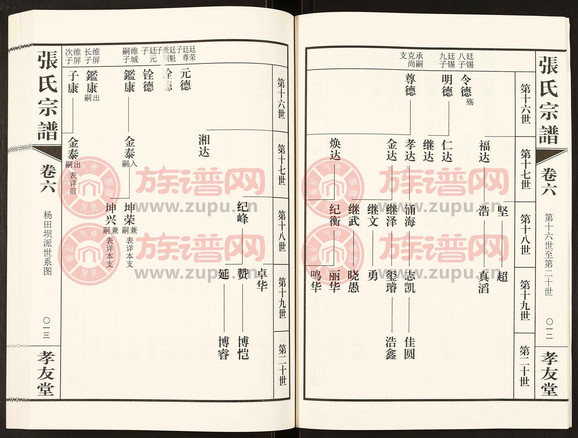 張氏宗譜
卷六
第十六世至第二十世
〇一二
孝友堂
第十六世
第十七世
第十八世
第十九世
第二十世
廷锡八子
令德 殇
廷锡九子
明德
承嗣克尚支
尊德
福达
仁达
继达
孝达
金达
焕达
坚
浩
涌海
继泽
继文
继武
纪衡
超
真滔
志凯
玺璿
勇
晓愚
丽华
鸣华
佳圆
浩鑫
第十六世
第十七世
第十八世
第十九世
第二十世
元德
廷元子
铨德
维城嗣子
鑑康
维屏长子
鑑康 出嗣
维屏次子
子康
湘达
金泰 入嗣
金泰 出嗣 表详前
纪峰
坤荣 兼嗣 表详本支
坤兴 兼嗣 表详本支
卓华
赞
延
博恺
博睿
張氏宗譜
卷六
杨田坝派世系图
〇一三
孝友堂
族谱网
www.zupu.cn
族谱网
www.zupu.cn